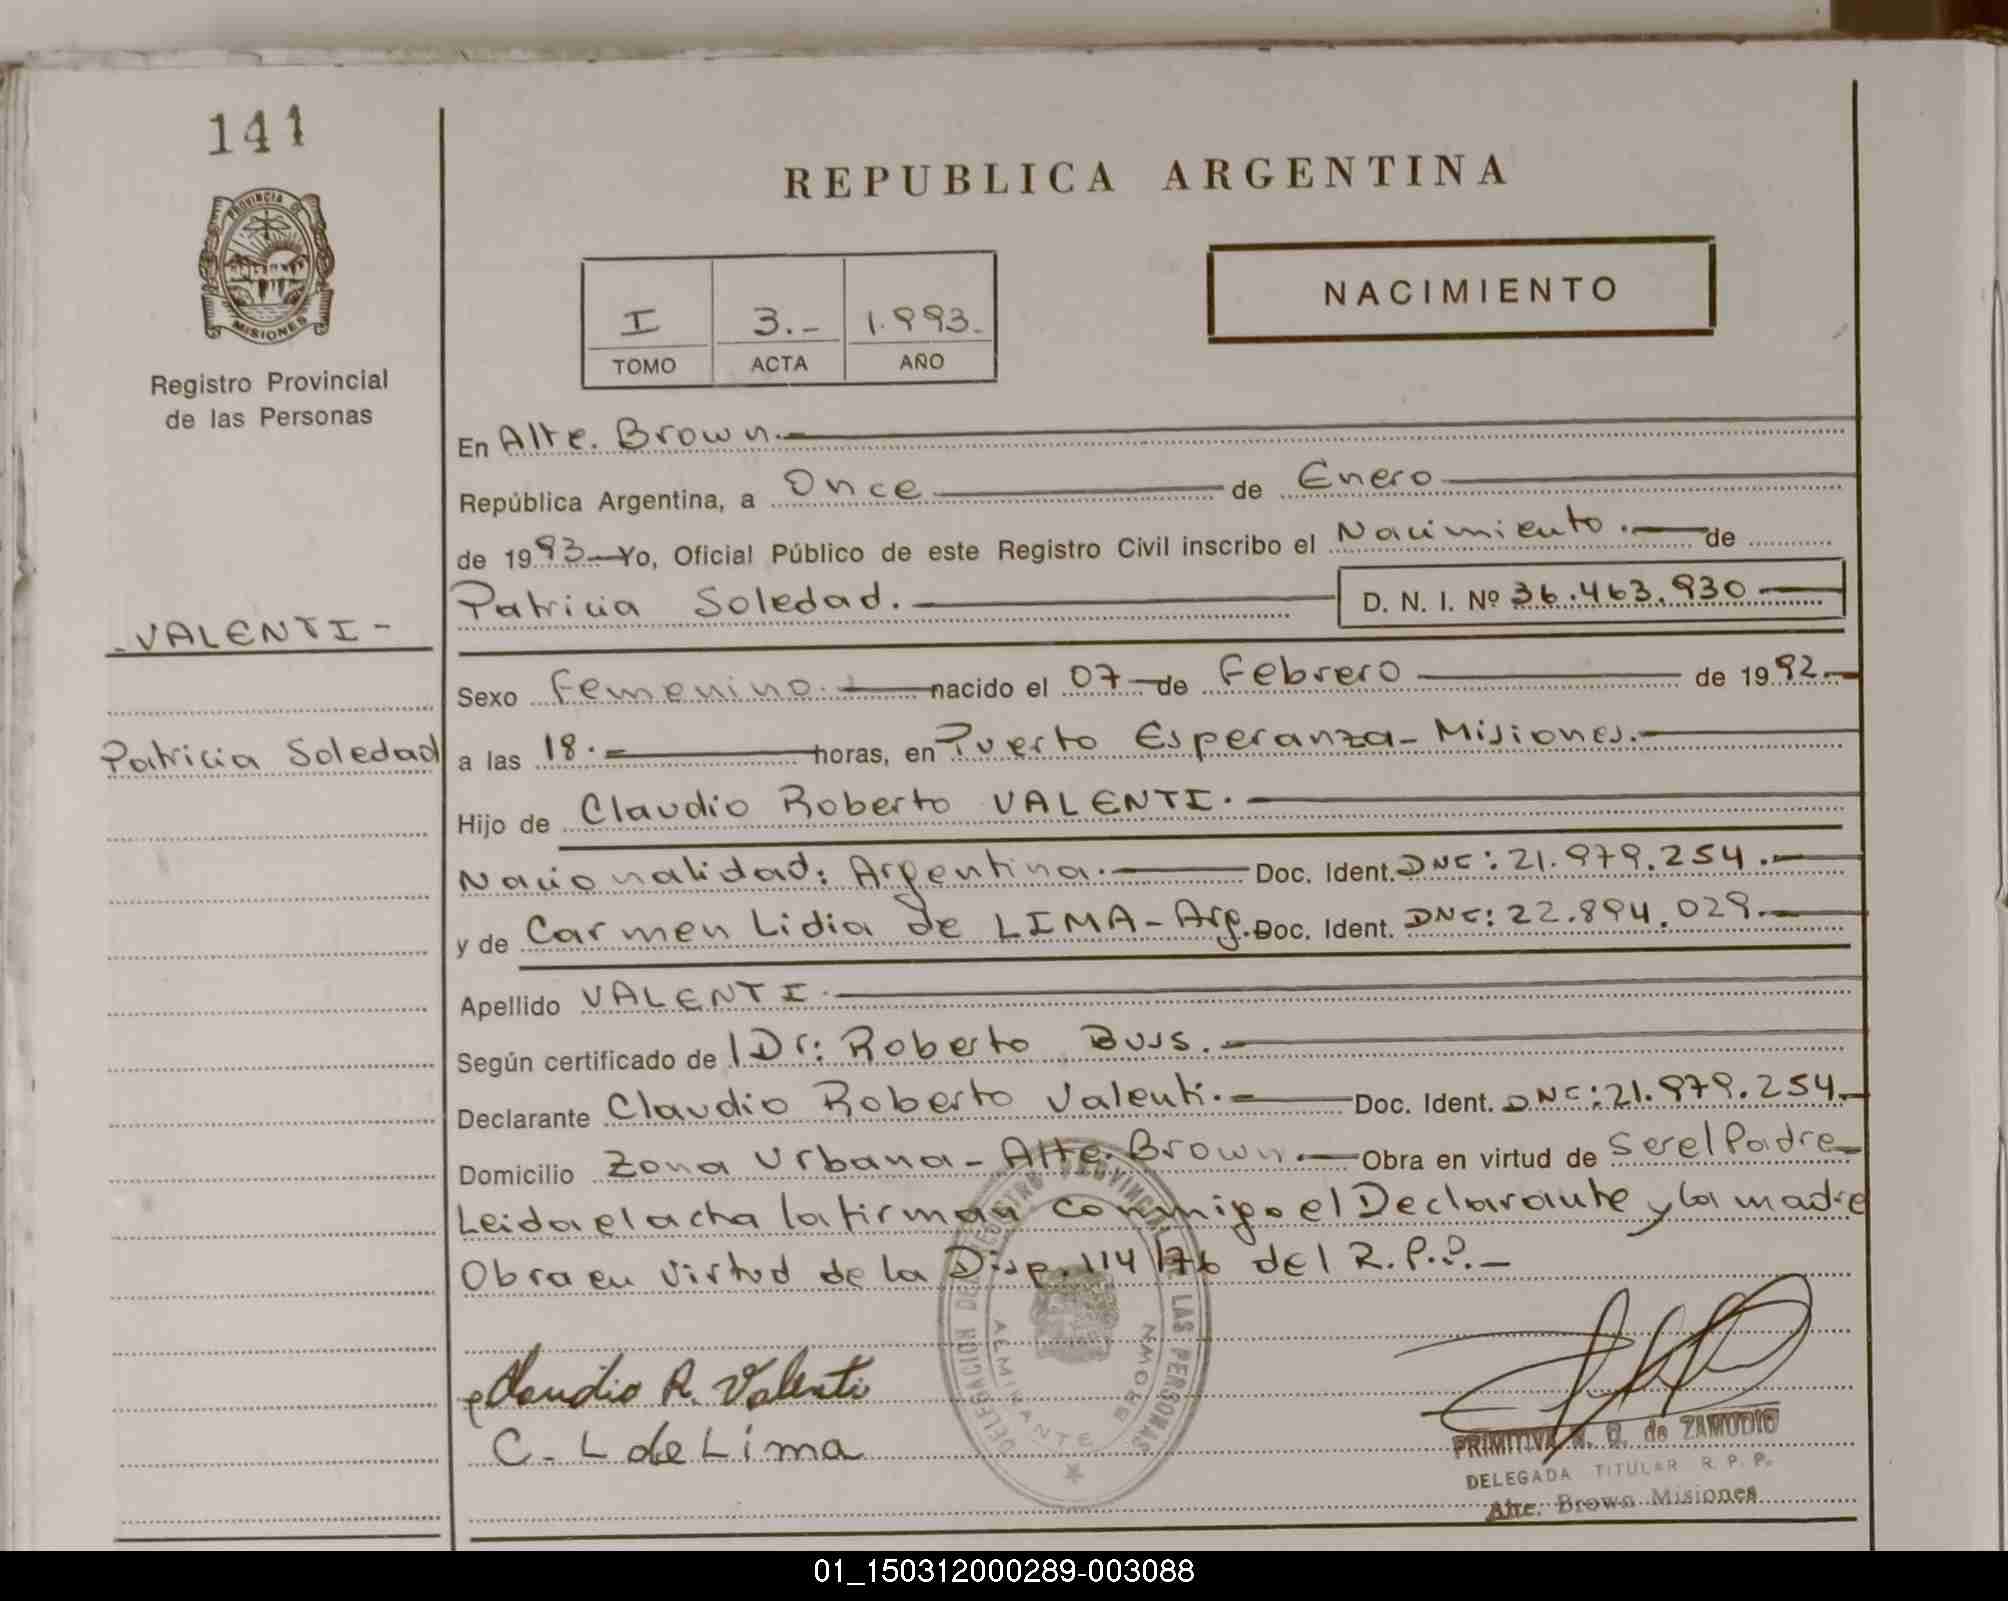 141
REPUBLICA ARGENTINA
PROVINCIA DE
MISIONES
Registro Provincial
de las Personas
I 3.- 1.993.-
TOMO ACTA AÑO
NACIMIENTO
En Alte. Brown.
República Argentina, a Once de Enero
de 1993 Yo, Oficial Público de este Registro Civil inscribo el Nacimiento. de
Patricia Soledad. D. N. I. Nº 36.463.930
-VALENTI-
Sexo Femenino. nacido el 07 de Febrero de 1992.
Patricia Soledad
a las 18. horas, en Puerto Esperanza- Misiones.
Hijo de Claudio Roberto VALENTI.
Nacionalidad: Argentina. Doc. Ident. DNI: 21.979.254.
y de Carmen Lidia de LIMA- Arg. Doc. Ident. DNI: 22.894.029.
Apellido VALENTI.
Según certificado de Dr: Roberto Buss.
Declarante Claudio Roberto Valenti. Doc. Ident. DNI: 21.979.254.
Domicilio Zona Urbana - Alte. Brown. Obra en virtud de Ser el Padre
Leida el acta la firman conmigo el Declarante y la madre
Obra en virtud de la Disp. 114/76 del R.P.P.-
DELEGACION DEL REGISTRO PROVINCIAL DE LAS PERSONAS
ALMIRANTE BROWN
Claudio R. Valenti
C. L de Lima
PRIMITIVA de ZAMUDIO
DELEGADA TITULAR R. P. P.
Alte. Brown Misiones
01_150312000289-003088